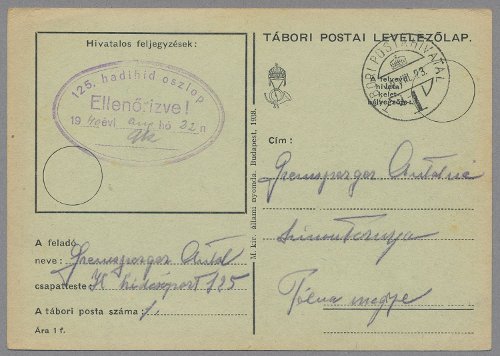 Hivatalos feljegyzések:
125. hadihíd oszlop
Ellenőrizve!
1940 évi aug hó 22 n
A feladó
neve: Gremsperger Antal
csapatteste: H hídcsoport 125
A tábori posta száma: 1.
Ára 1 f.
M. kir. állami nyomda. Budapest, 1938.
TÁBORI POSTAI LEVELEZŐLAP.
TÁBORI POSTAHIVATAL
A felvevő
hivatal
kelet-
bélyegzője.
23.
1
Cím:
Gremsperger Antalné
Simontornya
Tolna megye